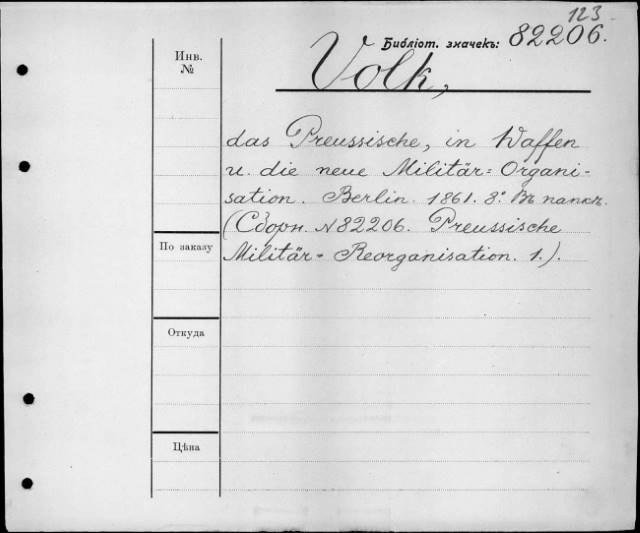 123
Библіот. значекъ: 82206.
Инв.
№
Volk,
das Preussische, in Waffen
u. die neue Militär-Organi-
sation. Berlin. 1861. 8°. Въ папкѣ.
(Сборн. №82206. Preussische
Militär-Reorganisation. 1.).
По заказу
Откуда
Цѣна